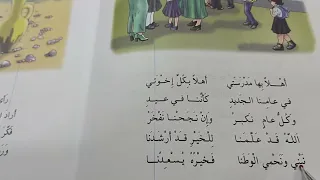 أَهْلاً بِهَا مَدْرَسَتِي أَهْلاً بِكُلِّ إِخْوَتِي
فِي عَامِنَا الْجَدِيدِ كَأَنَّنَا فِي عِيدِ
وَكُلُّ عَامٍ نَكْبَرُ وَإِنْ نَجَحْنَا نَفْخَرُ
اَللهُ قَدْ عَلَّمَنَا لِلْخَيْرِ قَدْ أَرْشَدَنَا
نَبْنِي وَنَحْمِي الْوَطَنَا فَخَيْرُهُ يُسْعِدُنَا